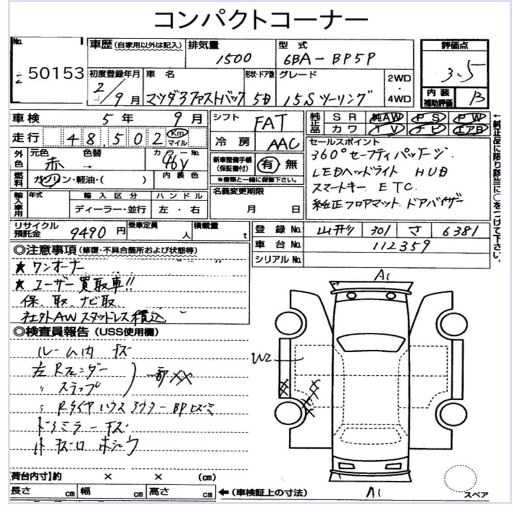 コンパクトコーナー
No. 50153
車歴 (自家用以外は記入) 排気量 1500 型式 6BA-BP5P 評価点 3.5
初度登録年月 2/9月 車名 マツダ3ファストバック 形状・ドア数 5D グレード 15Sツーリング 2WD・4WD 内装補助評価 B
車検 5年9月 シフト FAT 純正品 SR 純AW PS PW
走行 48,502 Km マイル 冷房 AAC カワ TV ナビ エアB
外色 元色 赤 色替 カラーNo. 46V
セールスポイント
360°セーフティパッケージ
LEDヘッドライト HUD
スマートキー ETC
純正フロアマット ドアバイザー
燃料 ガソリン・軽油・( ) 内装色
新車整備手帳(保証書付) 有 無
名義変更期限 月 日
輸入車用 年式 輸入区分 ディーラー・並行 ハンドル 左・右
リサイクル預託金 9490円 乗車定員 人 積載量 t
登録No. 301 さ 6381
車台No. 112359
シリアルNo.
←純正品に限り該当に○をつけて下さい。
◎注意事項 (修復・不具合箇所および状態等)
★ワンオーナー
★ユーザー買取車!!
保、取、ナビ取
社外AWスタッドレス積込
◎検査員報告 (USS使用欄)
ルーム内 キズ
左Rフェンダー
〃ステップ
ドアミラーキズ
A1
W2
XX
A1
荷台内寸 約 × × (cm)
長さ cm 幅 cm 高さ cm ←(車検証上の寸法)
スペア